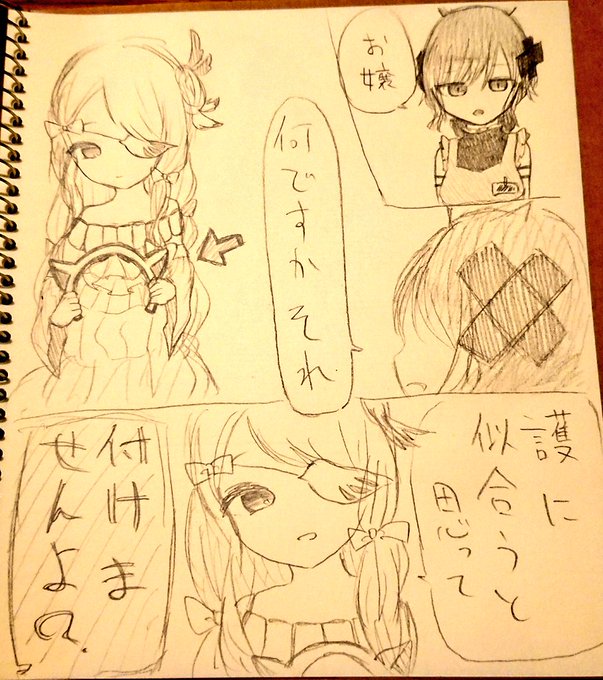 お嬢
何ですかそれ
護に
似合うと
思って
付けま
せんよ?